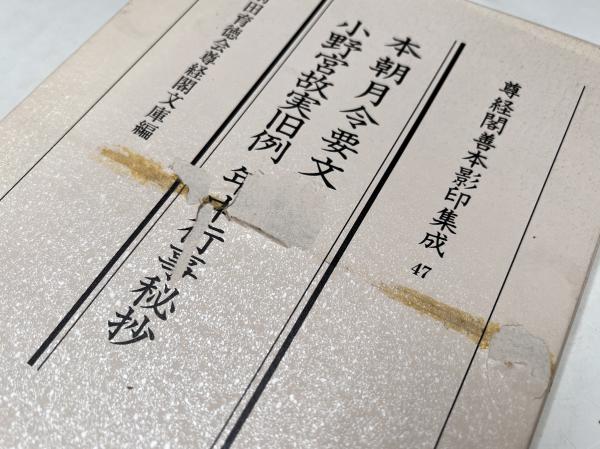 尊経閣善本影印集成 47
本朝月令要文
小野宮故実旧例
年中行事秘抄
田育徳会尊経閣文庫編